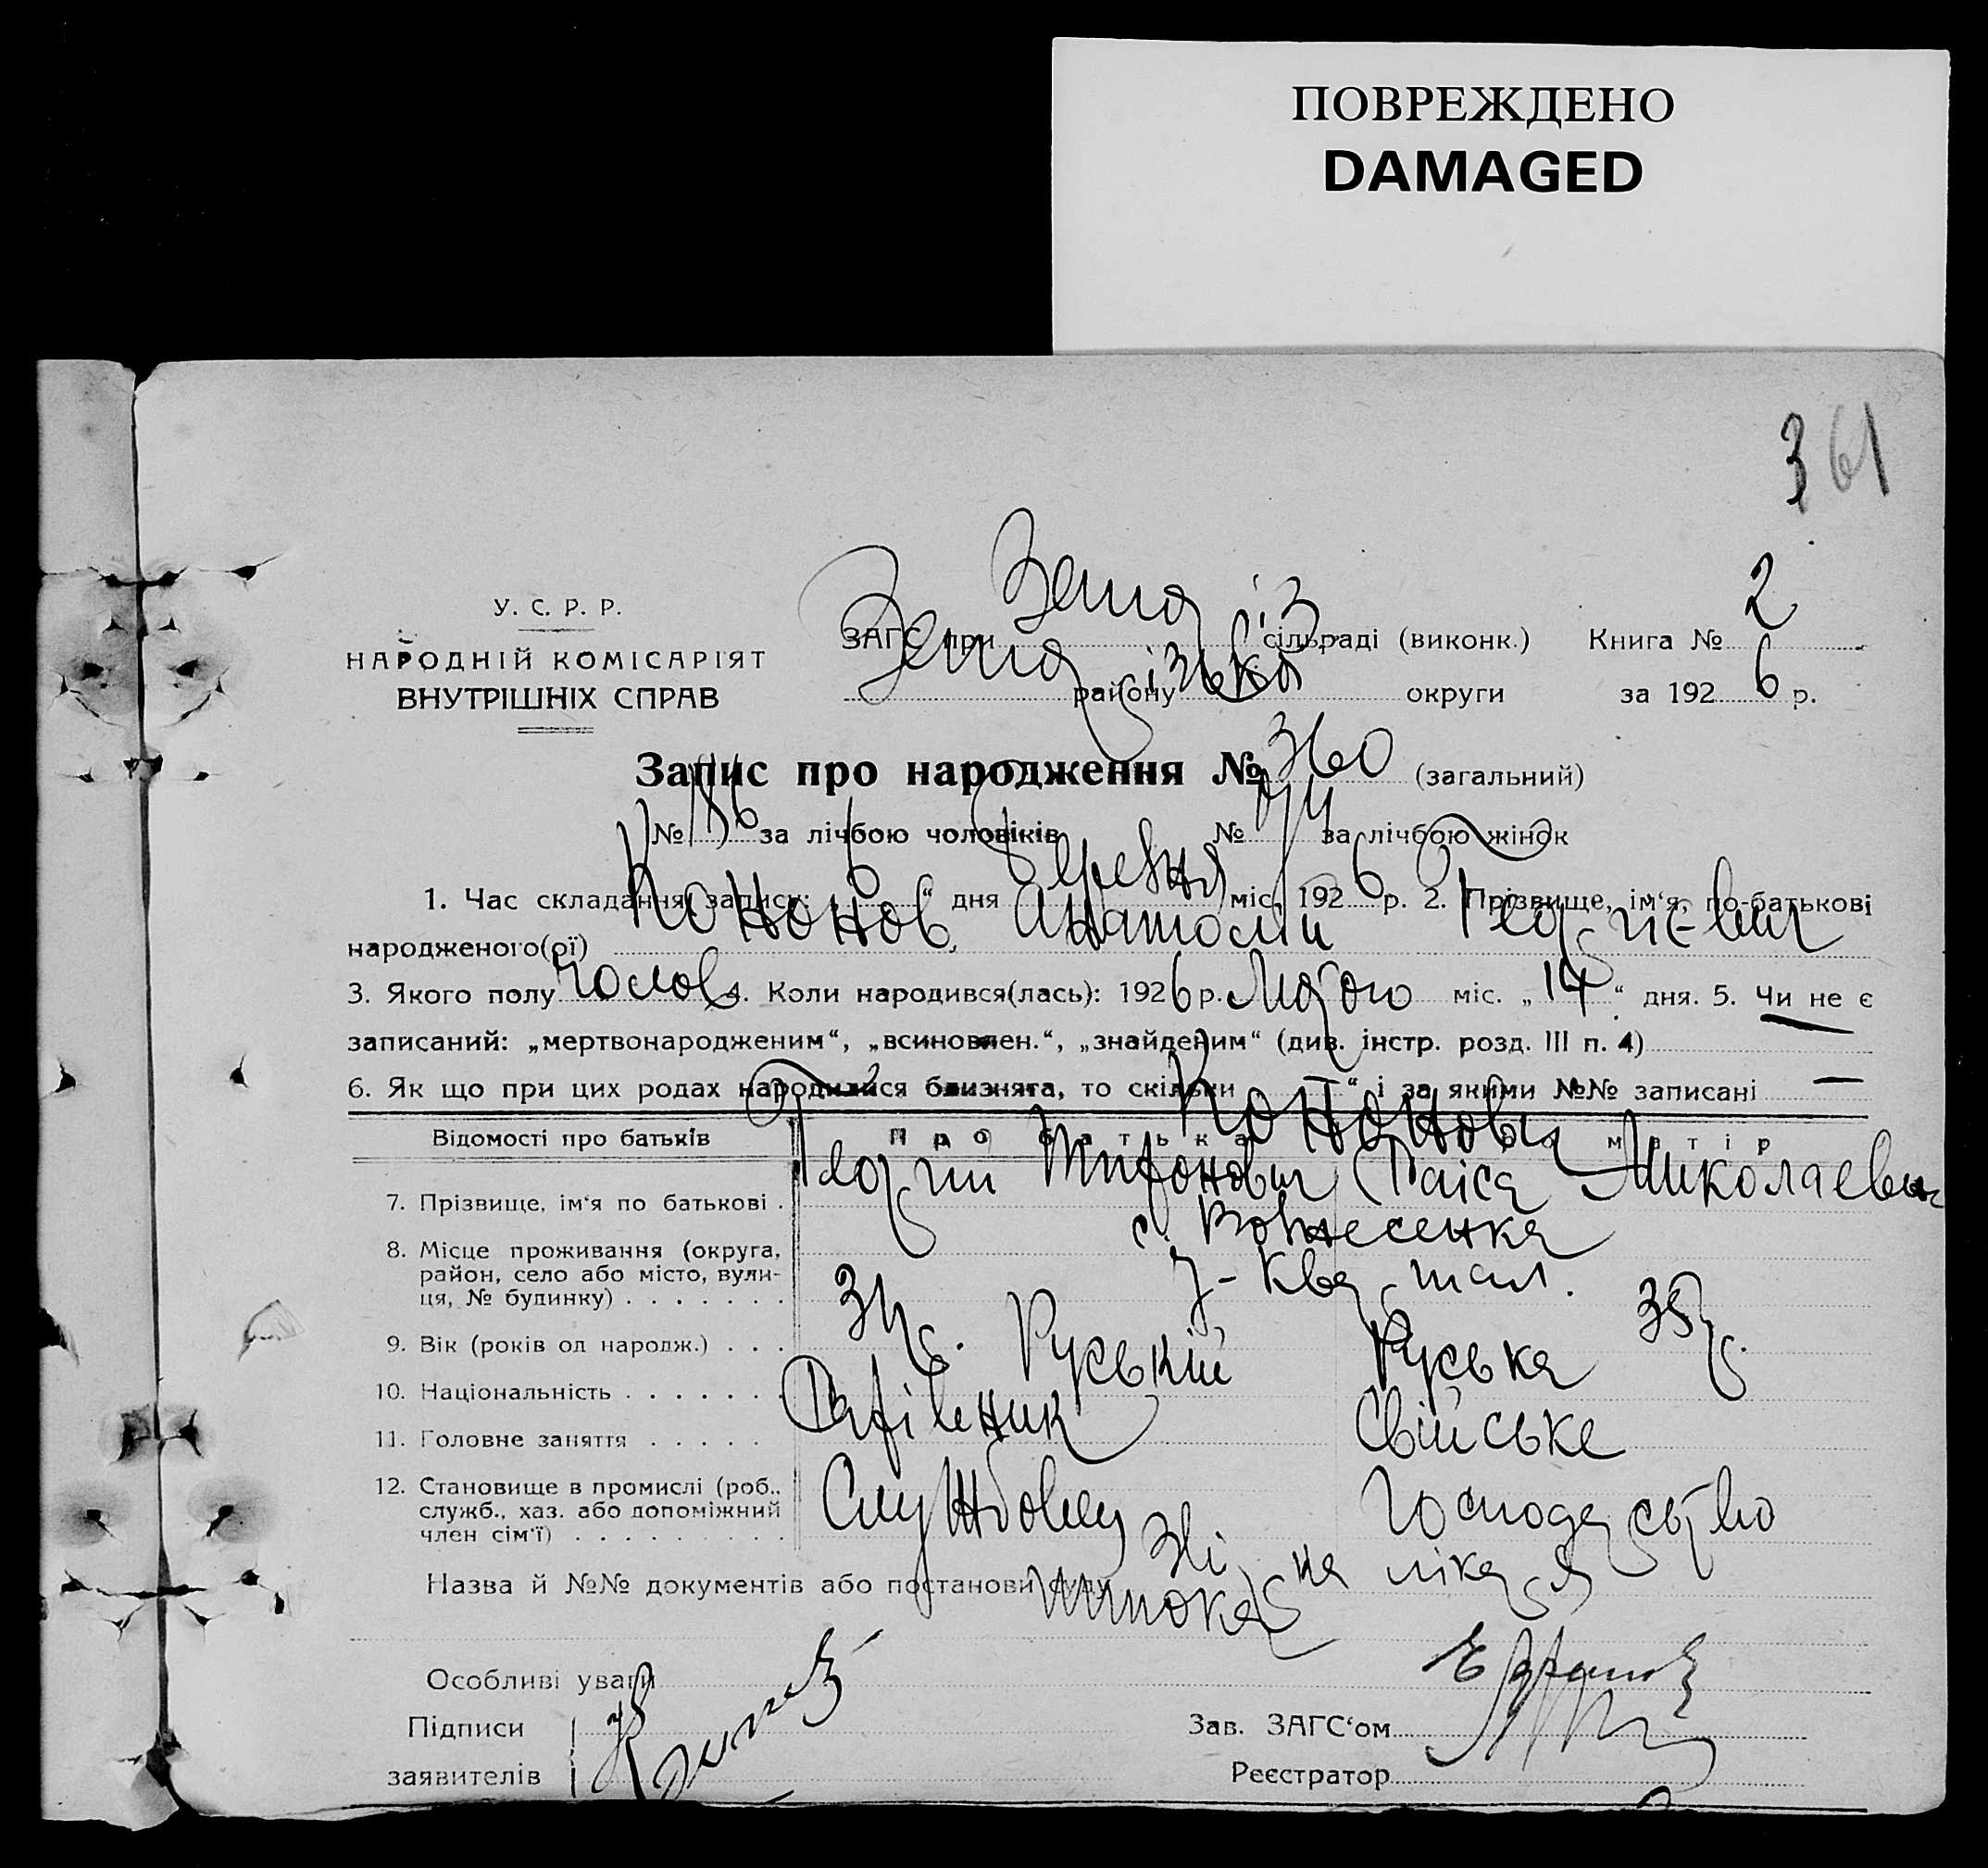 ПОВРЕЖДЕНО
DAMAGED
361
У. С. Р. Р.
НАРОДНІЙ КОМІСАРІЯТ
ВНУТРІШНІХ СПРАВ
ЗАГС при Запоріз. сільраді (виконк.) Книга № 2
району округи за 1926 р.
Запис про народження № 360 (загальний)
№ 186 за лічбою чоловіків № 174 за лічбою жінок
1. Час складання запису: „6“ дня Березня міс. 1926 р. 2. Прізвище, ім‘я, по-батькові
народженого(ої) Кононов, Анатолій Георгієвич
3. Якого полу Чолов 4. Коли народився(лась): 1926 р. Лютого міс. „14“ дня. 5. Чи не є
записаний: „мертвонародженим“, „всиновлен.“, „знайденим“ (див. інстр. розд. III п. 4)
6. Як що при цих родах народилися близнята, то скільки —“ і за якими №№ записані —
Відомості про батьків Про батька Про матір
Кононови
7. Прізвище, ім‘я по батькові . Георгій Миронович Раіса Миколаевна
8. Місце проживання (округа, район, село або місто, вулиця, № будинку) . . . . . . . с. Вознесенка
7 - квартал.
9. Вік (років од народж.) . . . 31 р. 35 р.
10. Національність . . . . . . . Руський Руська
11. Головне заняття . . . . . Свійське
12. Становище в промислі (роб., служб., хаз. або допоміжний член сім‘ї) . . . . . . . . . Службовец Господарство
Назва й №№ документів або постанови суду лікаря
Особливі уваги
Підписи
заявителів
Зав. ЗАГС‘ом
Реєстратор